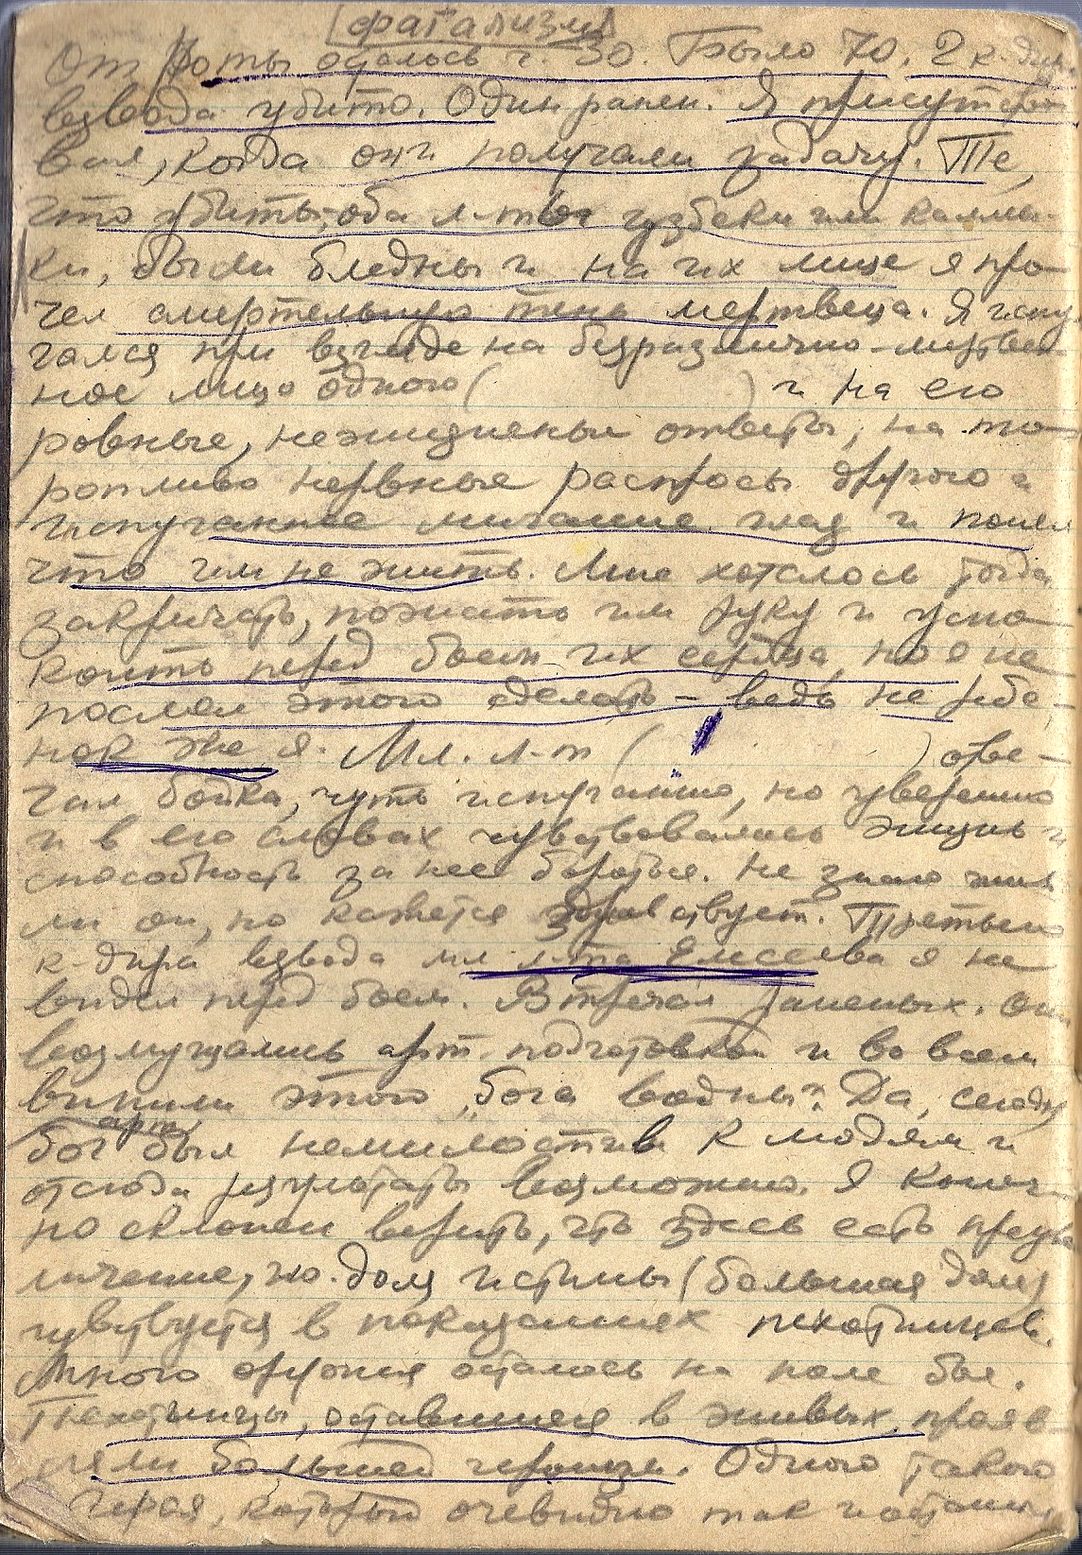 [фатализм]
От роты осталось ч. 30. Было 70. 2 к-дира
взвода убито. Один ранен. Я присутство-
вал, когда они получали задачу. Те,
что убиты, оба л-та узбеки или калмы-
ки, были бледны и на их лице я про-
чел смертельную тень мертвеца. Я испу-
гался при взгляде на безразлично-мертвен-
ное лицо одного ( ) и на его
ровные, нежизненные ответы, на то-
ропливо нервные распросы другого и
испуганное мигание глаз и понял
что им не жить. Мне хотелось тогда
закричать, пожать им руку и успо-
коить перед боем их сердца, но я не
посмел этого сделать – ведь не ребе-
нок же я. Мл. л-т ( ) отве-
чал бойко, чуть испуганно, но уверенно
и в его словах чувствовались жизнь и
способность за нее бороться. Не знаю жив
ли он, но кажется здравствует. Третьего
к-дира взвода мл л-та Елисеева я не
видел перед боем. Встречал раненых. Они
возмущались арт. подготовкой и во всем
винили этого „бога войны". Да, сегодня
арт.
бог был немилостив к людям и
отсюда результаты возможно. Я конеч-
но склонен верить, что здесь есть преуве-
личение, но доля истины (большая доля)
чувствуется в показаниях пехотинцев.
Много оружия осталось на поле боя.
Пехотинцы, оставшиеся в живых, прояв-
ляли большой героизм. Одного такого
героя, который очевидно так и останется